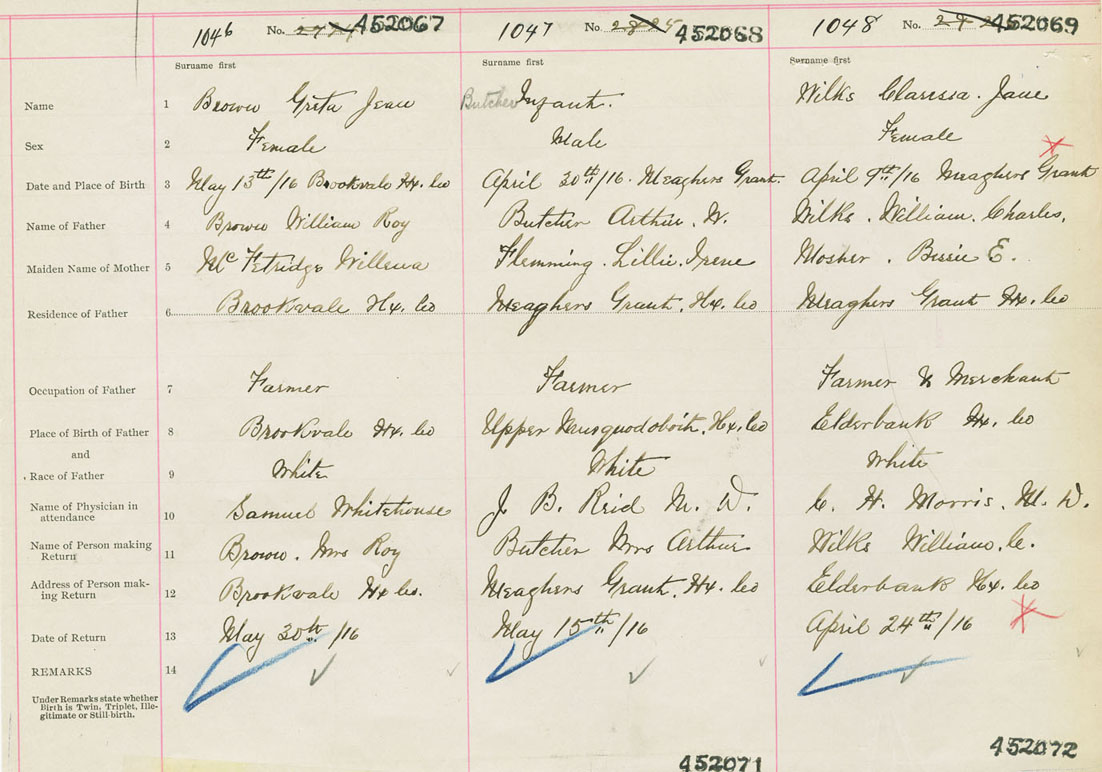 1046 No. 452067 1047 No. 2825 452068 1048 No. 452069
Surname first Surname first Surname first
Name 1 Brown Greta Jean Butcher Infant. Wilks Claressa. Jane
Sex 2 Female Male Female
Date and Place of Birth 3 May 13th/16 Brookvale Hx. Co April 30th/16. Meaghers Grant. April 9th/16 Meaghers Grant
Name of Father 4 Brown William Roy Butcher Arthur. W. Wilks. William. Charles,
Maiden Name of Mother 5 McFetridge Willena Flemming. Lillie. Irene Mosher. Bessie E.
Residence of Father 6 Brookvale Hx. Co Meaghers Grant. Hx. Co Meaghers Grant Hx. Co
Occupation of Father 7 Farmer Farmer Farmer & Merchant
Place of Birth of Father 8 Brookvale Hx. Co Upper Musquodoboit. Hx. Co Elderbank Hx. Co
and
Race of Father 9 White White White
Name of Physician in
attendance 10 Samuel Whitehouse J. B. Reid M. D. C. H. Morris. M. D.
Name of Person making
Return 11 Brown. Mrs Roy Butcher Mrs Arthur Wilks William. C.
Address of Person mak-
ing Return 12 Brookvale Hx Co. Meaghers Grant. Hx. Co Elderbank Hx. Co
Date of Return 13 May 30th/16 May 15th/16 April 24th/16
REMARKS 14
Under Remarks state whether
Birth is Twin, Triplet, Ille-
gitimate or Still-birth.
452071 452072